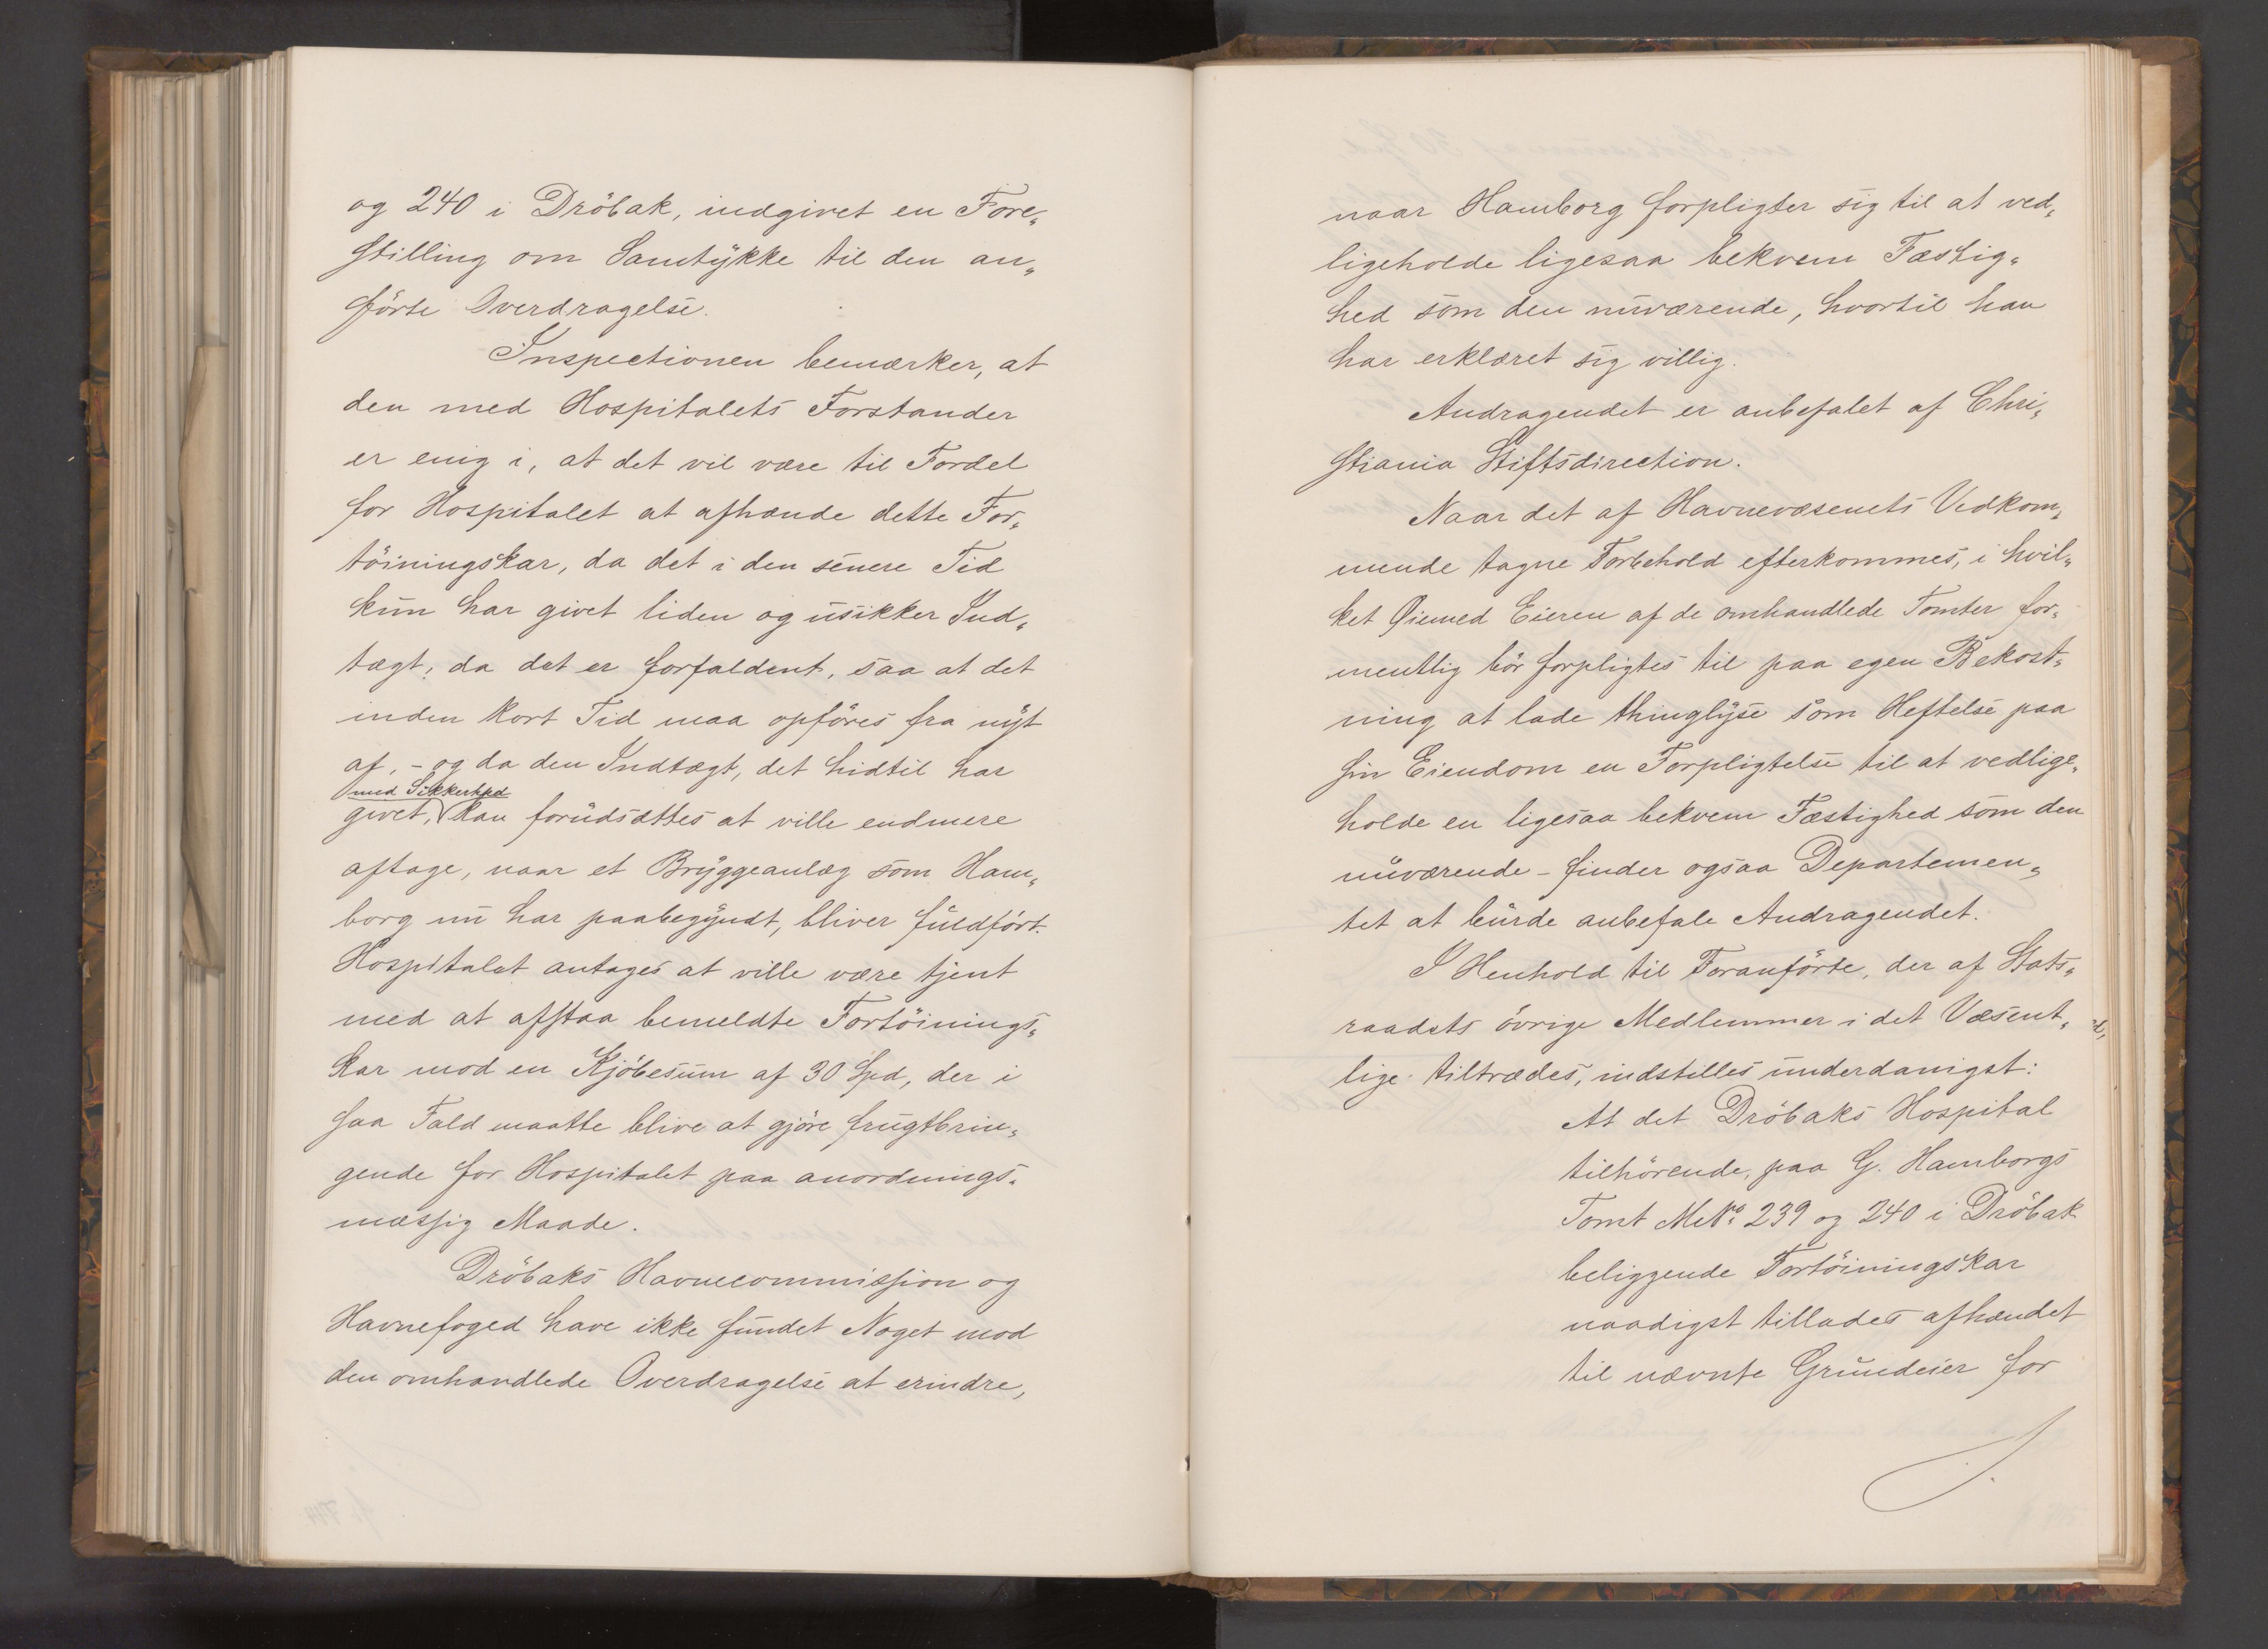 og 240 i Dröbak, indgivet en Fore„
stilling om Samtykke til den an„
förte Overdragelse.
Inspectionen bemærker, at
den med Hospitalets Forstander
er enig i, at det vil være til Fordel
for Hospitalet at afhænde dette For„
töiningskar, da det i den senere Tid
kun har givet liden og usikker Ind„
tægt, da det er forfaldent, saa at det
inden kort Tid maa opföres fra nyt
af, - og da den Indtægt, det hidtil har
med Sikkerhed
givet, kan forudsættes at ville endmere
aftage, naar et Bryggeanlæg som Ham„
borg nu har paabegyndt, bliver fuldfört.
Hospitalet antages at ville være tjent
med at afstaa bemeldte Fortöinings„
kar mod en Kjöbesum af 30 Spd, der i
saa Fald maatte blive at gjöre frugtbrin„
gende for Hospitalet paa anordnings„
mæssig Maade.
Dröbaks Havnecommission og
Havnefoged have ikke fundet Noget mod
den omhandlede Overdragelse at erindre,
naar Hamborg forpligter sig til at ved„
ligeholde ligesaa bekvem Fæstig„
hed som den nuværende, hvortil han
har erklæret sig villig.
Andragendet er anbefalet af Chri„
stiania Stiftsdirection.
Naar det af Havnevæsenets Vedkom„
mende tagne Forbehold efterkommes, i hvil„
ket Øiemed Eieren af de omhandlede Tomter for„
mentlig bör forpligtes til paa egen Bekost„
ning at lade thinglyse som Heftelse paa
sin Eiendom en Forpligtelse til at vedlige„
holde en ligesaa bekvem Fæstighed som den
nuværende - finder ogsaa Departemen„
tet at burde anbefale Andragendet.
I Henhold til Foranförte, der af Stats„
raadets övrige Medlemmer i det Væsent„
lige tiltrædes, indstilles underdanigst:
At det Dröbaks Hospital
tilhörende, paa G. Hamborgs
Tomt M.No. 239 og 240 i Dröbak
beliggende Fortöiningskar
naadigst tillades afhændet
til nævnte Grundeier for